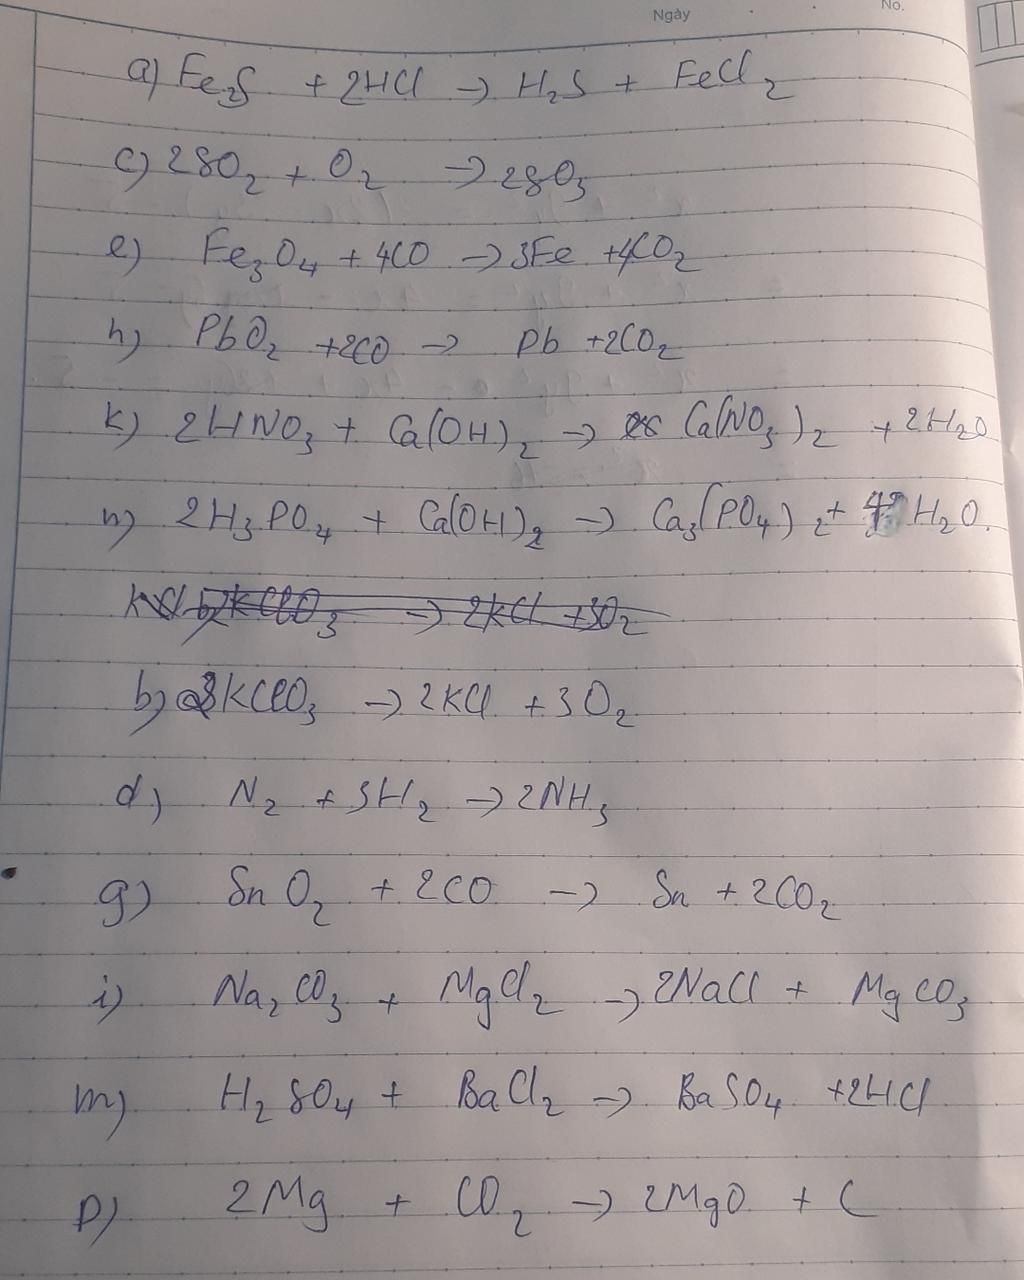 Ngày No.
a) Fe₂S + 2HCl → H₂S + FeCl₂
c) 2SO₂ + O₂ → 2SO₃
e) Fe₃O₄ + 4CO → 3Fe + 4CO₂
h) PbO₂ + 2CO → Pb + 2CO₂
k) 2HNO₃ + Ca(OH)₂ → Ca(NO₃)₂ + 2H₂O
n) 2H₃PO₄ + Ca(OH)₂ → Ca₃(PO₄)₂ + H₂O.
2KClO₃ → 2KCl + 3O₂
b) KClO₃ → 2KCl + 3O₂
d) N₂ + 3H₂ → 2NH₃
g) SnO₂ + 2CO → Sn + 2CO₂
i) Na₂CO₃ + MgCl₂ → 2NaCl + MgCO₃
m) H₂SO₄ + BaCl₂ → BaSO₄ + 2HCl
p) 2Mg + CO₂ → 2MgO + C